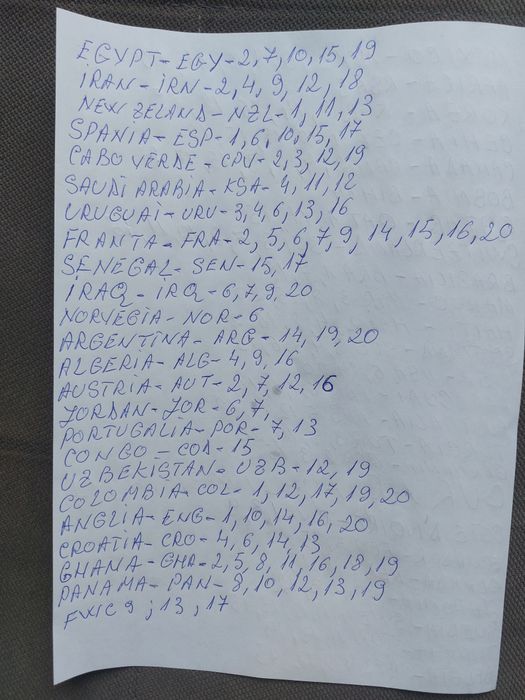 EGYPT-EGY-2,7,10,15,19
IRAN-IRN-2,4,9,12,18
NEW ZELAND-NZL-1,11,13
SPANIA-ESP-1,6,10,15,17
CABO VERDE-CPV-2,3,12,19
SAUDI ARABIA-KSA-4,11,12
URUGUAI-URU-3,4,6,13,16
FRANTA-FRA-2,5,6,7,9,14,15,16,20
SENEGAL-SEN-15,17
IRAQ-IRQ-6,7,9,20
NORVEGIA-NOR-6
ARGENTINA-ARG-14,19,20
ALGERIA-ALG-4,9,16
AUSTRIA-AUT-2,7,12,16
JORDAN-JOR-6,7,
PORTUGALIA-POR-7,13
CONGO-COD-15
UZBEKISTAN-UZB-12,19
COLOMBIA-COL-1,12,17,19,20
ANGLIA-ENG-1,10,14,16,20
CROATIA-CRO-4,6,14,13
GHANA-GHA-2,5,8,11,16,18,19
PANAMA-PAN-8,10,12,13,19
FWC 9;13,17